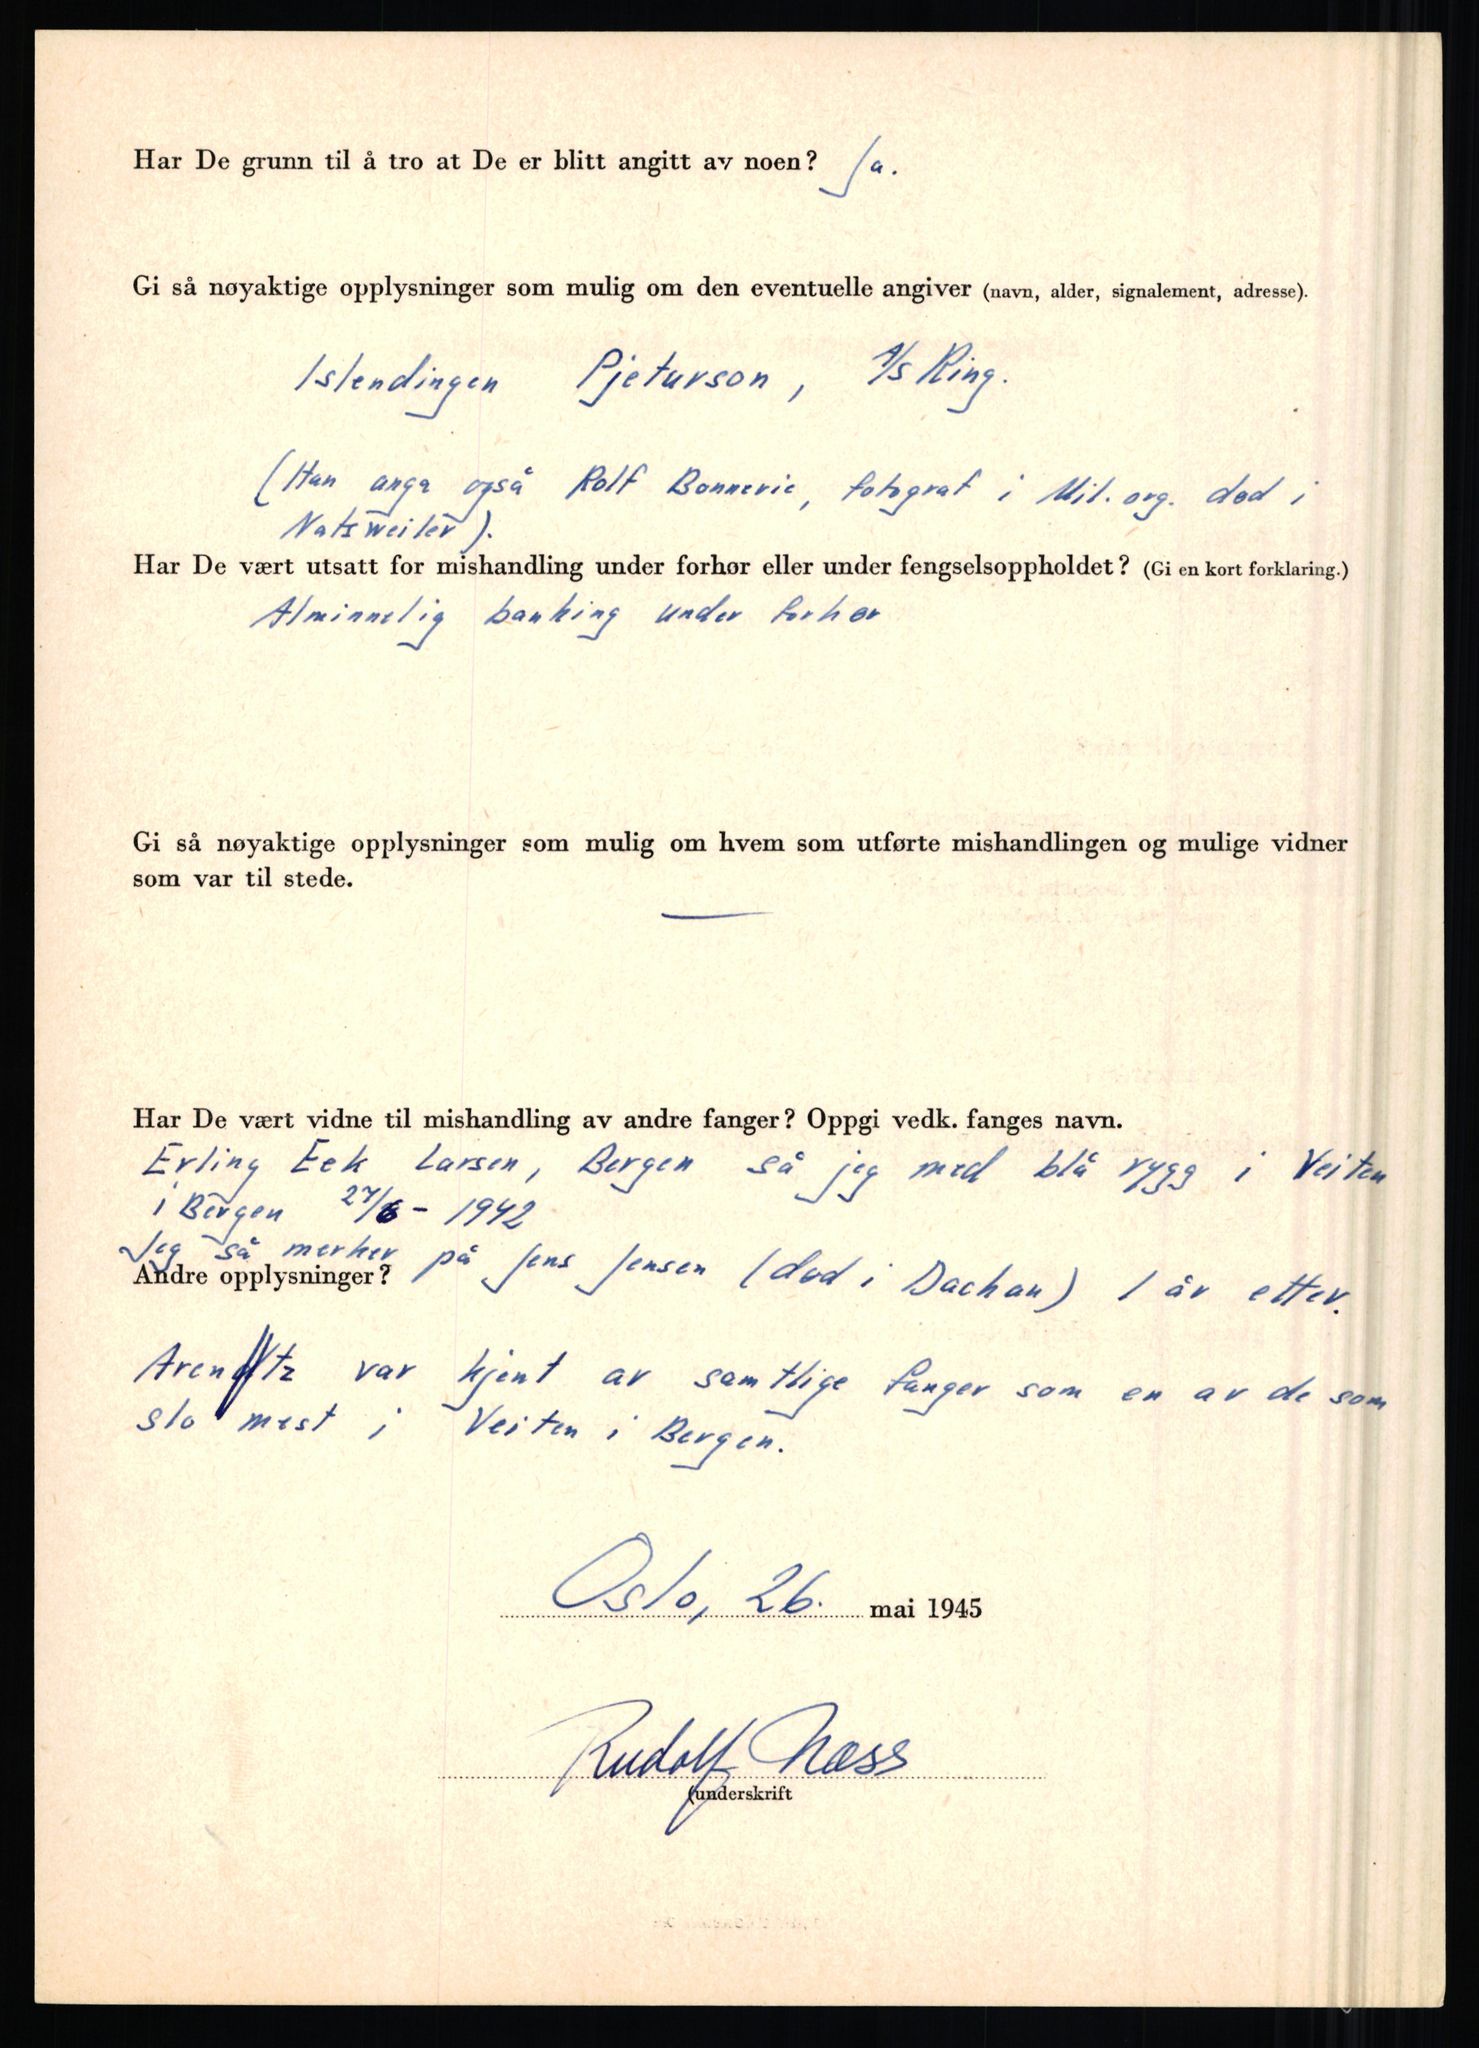 Har De grunn til å tro at De er blitt angitt av noen? Ja.
Gi så nøyaktige opplysninger som mulig om den eventuelle angiver (navn, alder, signalement, adresse).
Islendingen Pjeturson, A/S Ring.
(Han anga også Rolf Bonnevie, fotograf i Mil. org. død i
Natsweiler).
Har De vært utsatt for mishandling under forhør eller under fengselsoppholdet? (Gi en kort forklaring.)
Alminnelig banking under forhør
Gi så nøyaktige opplysninger som mulig om hvem som utførte mishandlingen og mulige vidner
som var til stede.
Har De vært vidne til mishandling av andre fanger? Oppgi vedk. fanges navn.
Erling Eek Larsen, Bergen så jeg med blå rygg i Veiten
i Bergen 27/6 - 1942
Jeg så merker på Jens Jensen (død i Dachau) 1 år etter.
Andre opplysninger?
Arentz var kjent av samtlige fanger som en av de som
slo mest i Veiten i Bergen.
Oslo, 26. mai 1945
Rudolf Næss
(underskrift